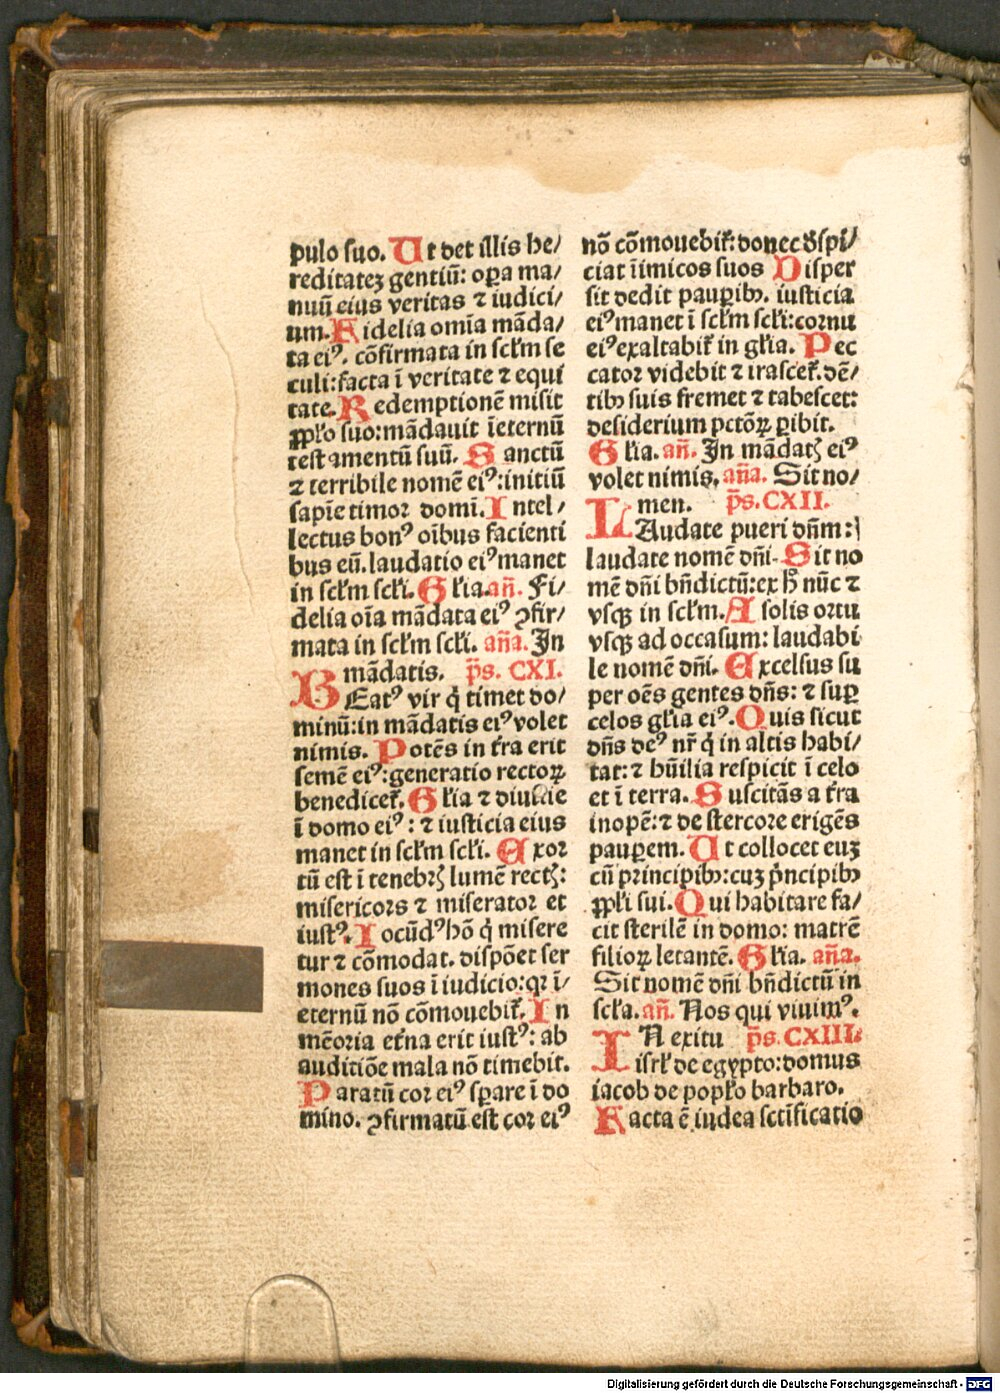 pulo suo. Ut det illis he/
reditatez gentiū: oꝑa ma/
nuū eius veritas ⁊ iudici/
um. Fidelia om̄ia māda/
ta eiꝰ. cōfirmata in scl̄m se
culi: facta ī veritate ⁊ equi
tate. Redemptionē misit
ꝓpl̄o suo: mādauit īeternū
testamentū suū. Sanctū
⁊ terribile nomē eiꝰ: initiū
sapīe timor domi. Intel/
lectus bonꝰ oībus facienti
bus eū. laudatio eiꝰ manet
in scl̄m scl̄i. Gl̄ia. an̄. Fi/
delia oīa mādata eiꝰ ꝯfir/
mata in scl̄m scl̄i. an̄a. In
mādatis. p̄s. CXI.
BEatꝰ vir q̄ timet do/
minū: in mādatis eiꝰ volet
nimis. Potēs in t̄ra erit
semē eiꝰ: generatio rectoꝝ
benedicet᷑. Gl̄ia ⁊ diuitie
ī domo eiꝰ: ⁊ iusticia eius
manet in scl̄m scl̄i. Exor
tū est ī tenebrꝭ lumē rectꝭ:
misericors ⁊ miserator et
iustꝰ. Iocūdꝰ hō q̄ misere
tur ⁊ cōmodat. dispōet ser
mones suos ī iudicio: qꝛ ī/
eternū nō cōmouebit᷑. In
mēoria et̄na erit iustꝰ: ab
auditiōe mala nō timebit.
Paratū cor eiꝰ sꝑare ī do
mino. ꝯfirmatū est cor eiꝰ
nō cōmouebit᷑: donec d̄spi/
ciat īimicos suos Disper
sit dedit pauꝑibꝫ. iusticia
eiꝰ manet ī scl̄m scl̄i: cornu
eiꝰ exaltabit᷑ in gl̄ia. Pec
cator videbit ⁊ irascet᷑. dē/
tibꝫ suis fremet ⁊ tabescet:
desiderium pctōꝝ ꝑibit.
Gl̄ia. an̄. In mādatꝭ eiꝰ
volet nimis. an̄a. Sit no/
men. p̄s. CXII.
LAudate pueri dn̄m:
laudate nomē dn̄i. Sit no
mē dn̄i bn̄dictū: ex h̄ nūc ⁊
vsqꝫ in scl̄m. A solis ortu
vsqꝫ ad occasum: laudabi
le nomē dn̄i. Excelsus su
per oēs gentes dn̄s: ⁊ suꝑ
celos gl̄ia eiꝰ. Quis sicut
dn̄s deꝰ nr̄ q̄ in altis habi/
tat: ⁊ hūilia respicit ī celo
et ī terra. Suscitās a t̄ra
inopē: ⁊ de stercore erigēs
pauꝑem. Ut collocet euz
cū principibꝫ: cuz p̄ncipibꝫ
ꝓpl̄i sui. Qui habitare fa/
cit sterilē in domo: matrē
filioꝝ letantē. Gl̄ia. an̄a.
Sit nomē dn̄i bn̄dictū in
scl̄a. an̄. Nos qui viuimꝰ.
IN exitu p̄s. CXIII.
isrl̄ de egypto: domus
iacob de popl̄o barbaro.
Facta ē iudea sctīficatio
Digitalisierung gefördert durch die Deutsche Forschungsgemeinschaft - DFG